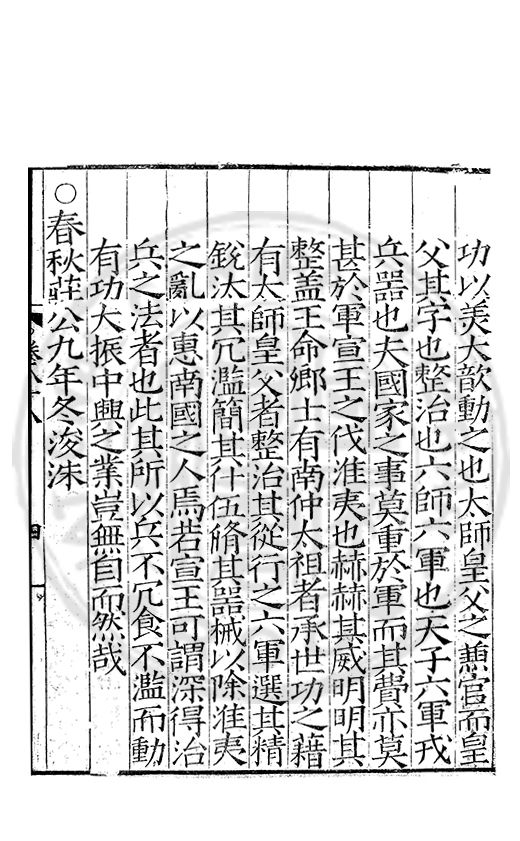 功以美大歆動之也太師皇父之兼官而皇
父其字也整治也六師六軍也天子六軍戎
兵器也夫國家之事莫重於軍而其費亦莫
甚於軍宣王之伐淮夷也赫赫其威明明其
整盖王命鄉士有南仲太祖者承世功之藉
有太師皇父者整治其從行之六軍選其精
銳汰其冗濫簡其什伍脩其器械以除淮夷
之亂以惠南國之人焉若宣王可謂深得治
兵之法者也此其所以兵不冗食不濫而動
有功大振中興之業豈無自而然哉
○春秋莊公九年冬浚洙
四